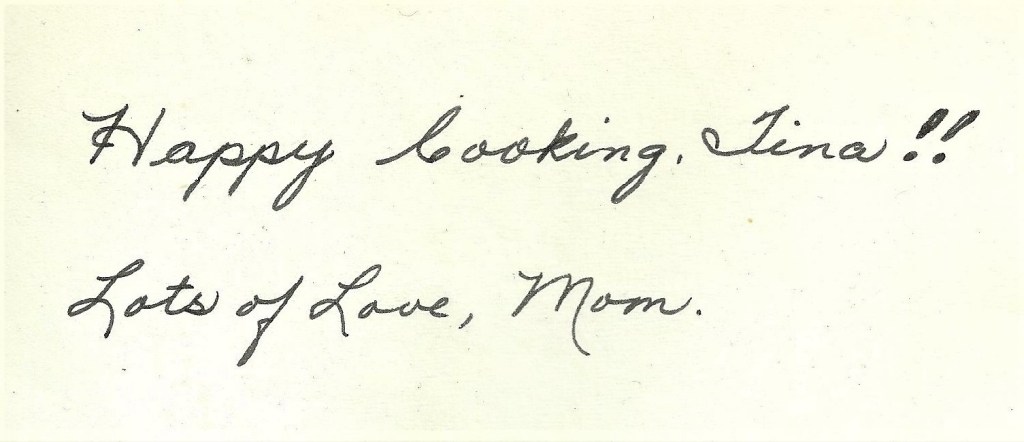 Happy Cooking, Tina!!
Lots of Love, Mom.